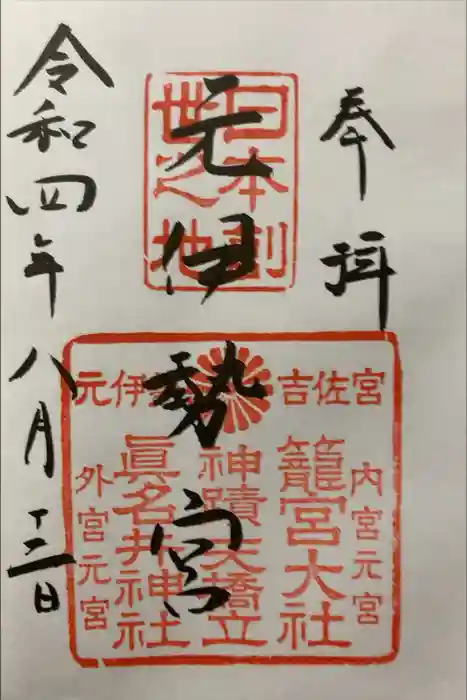 奉拝
日本創
世之地
元伊勢宮
元伊勢
吉佐宮
内宮元宮
籠宮大社
神蹟天橋立
眞名井神社
外宮元宮
令和四年八月十三日